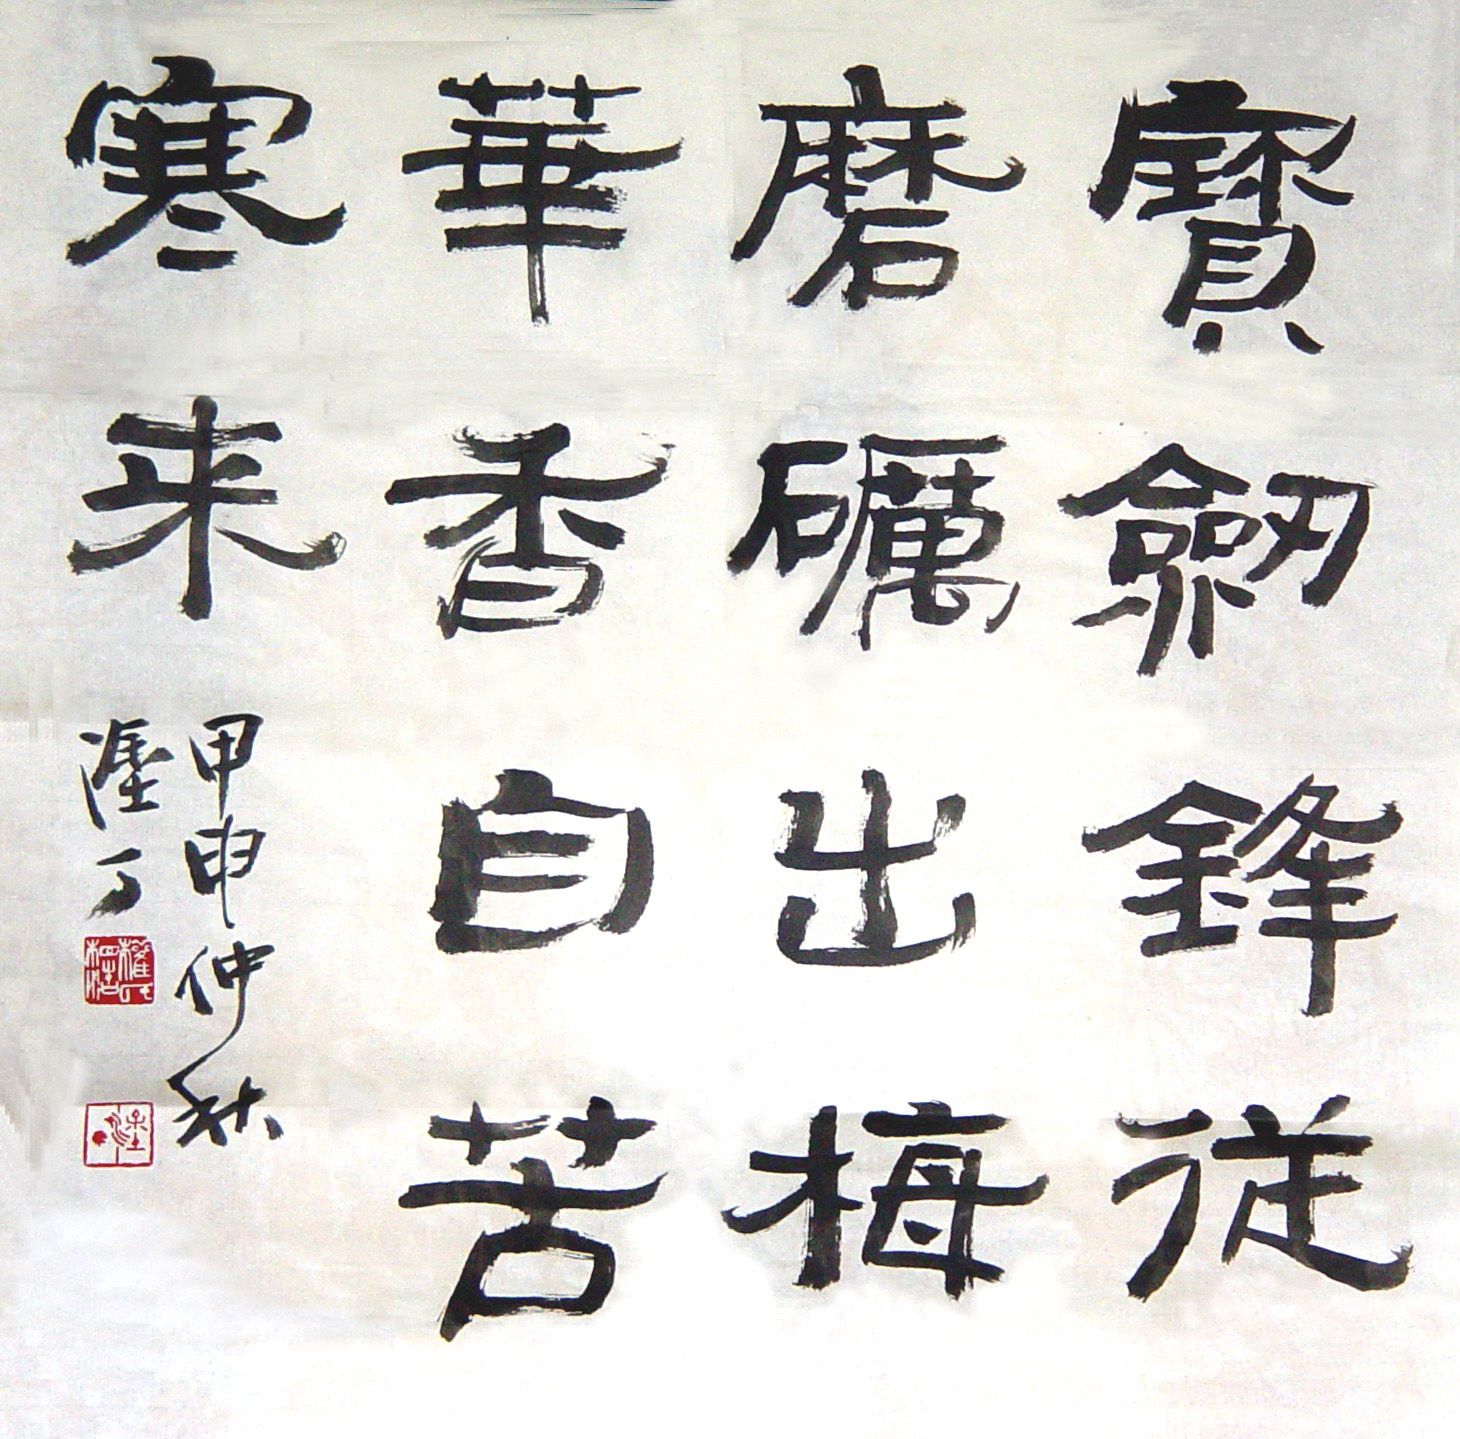 寶劍鋒従
磨礪出梅
華香自苦
寒来
甲申仲秋